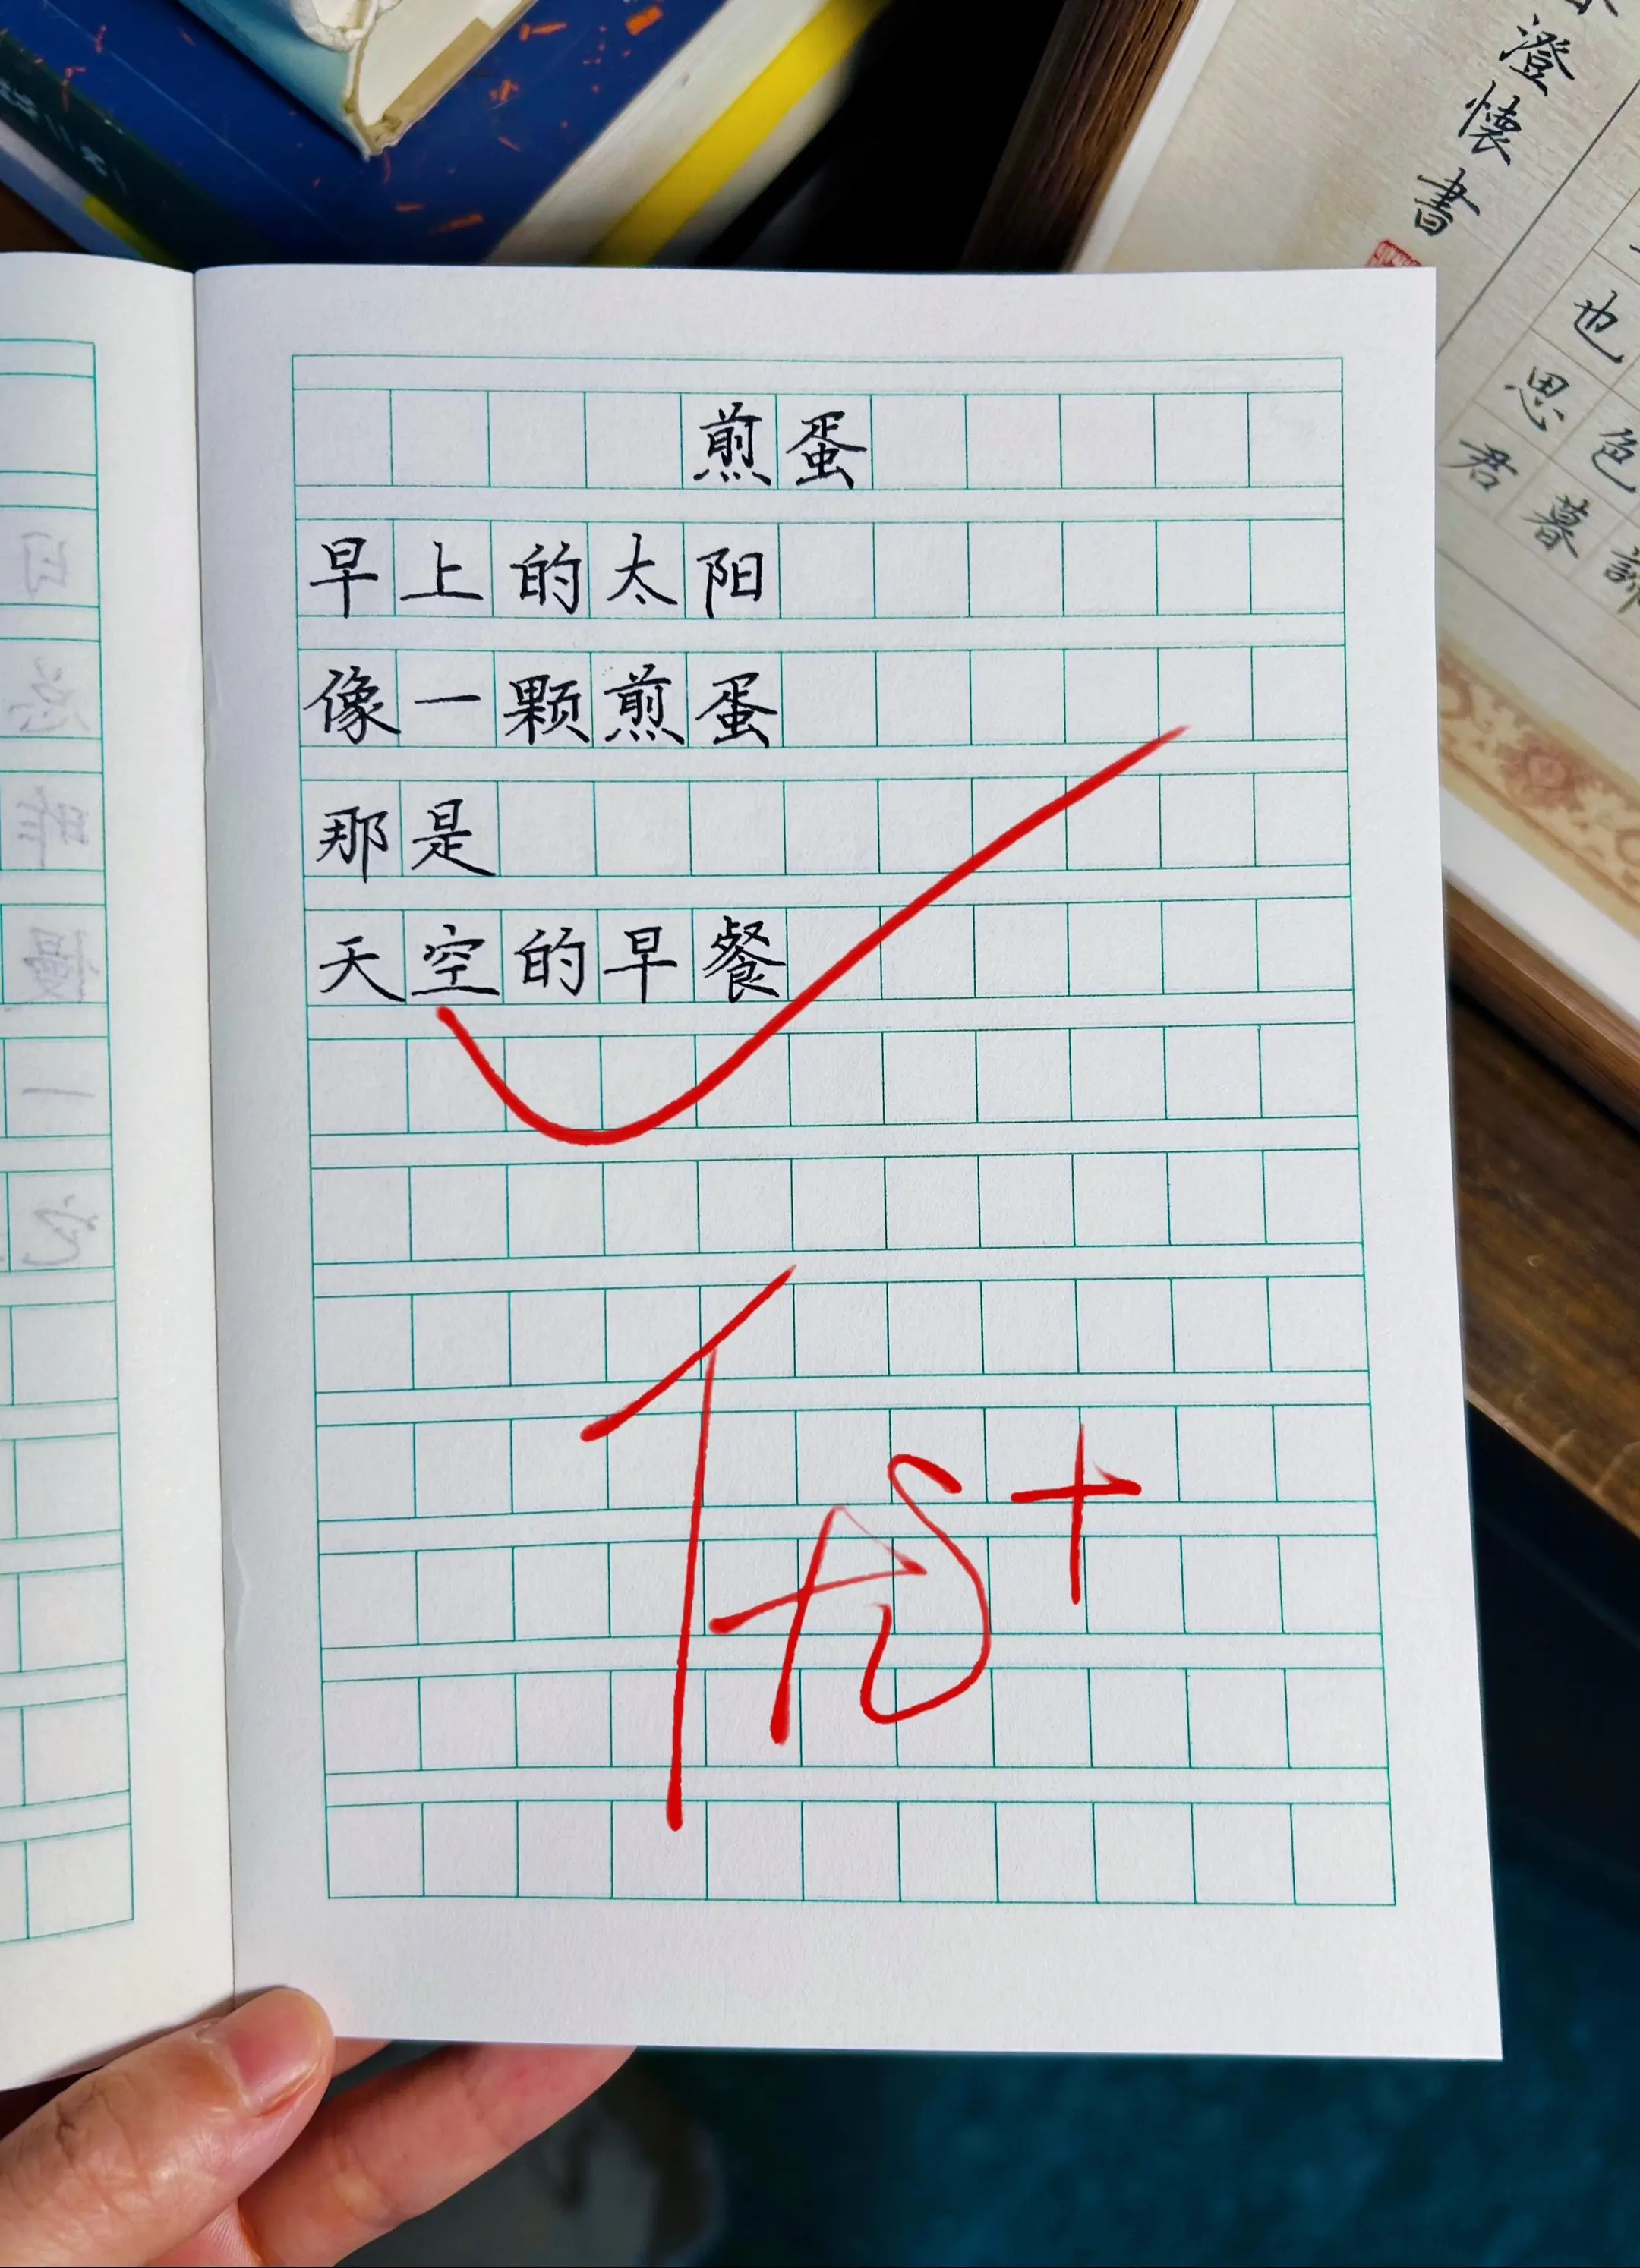 煎蛋
早上的太阳
像一颗煎蛋
那是
天空的早餐
优+
澄懷書
也
思
君
色
暮